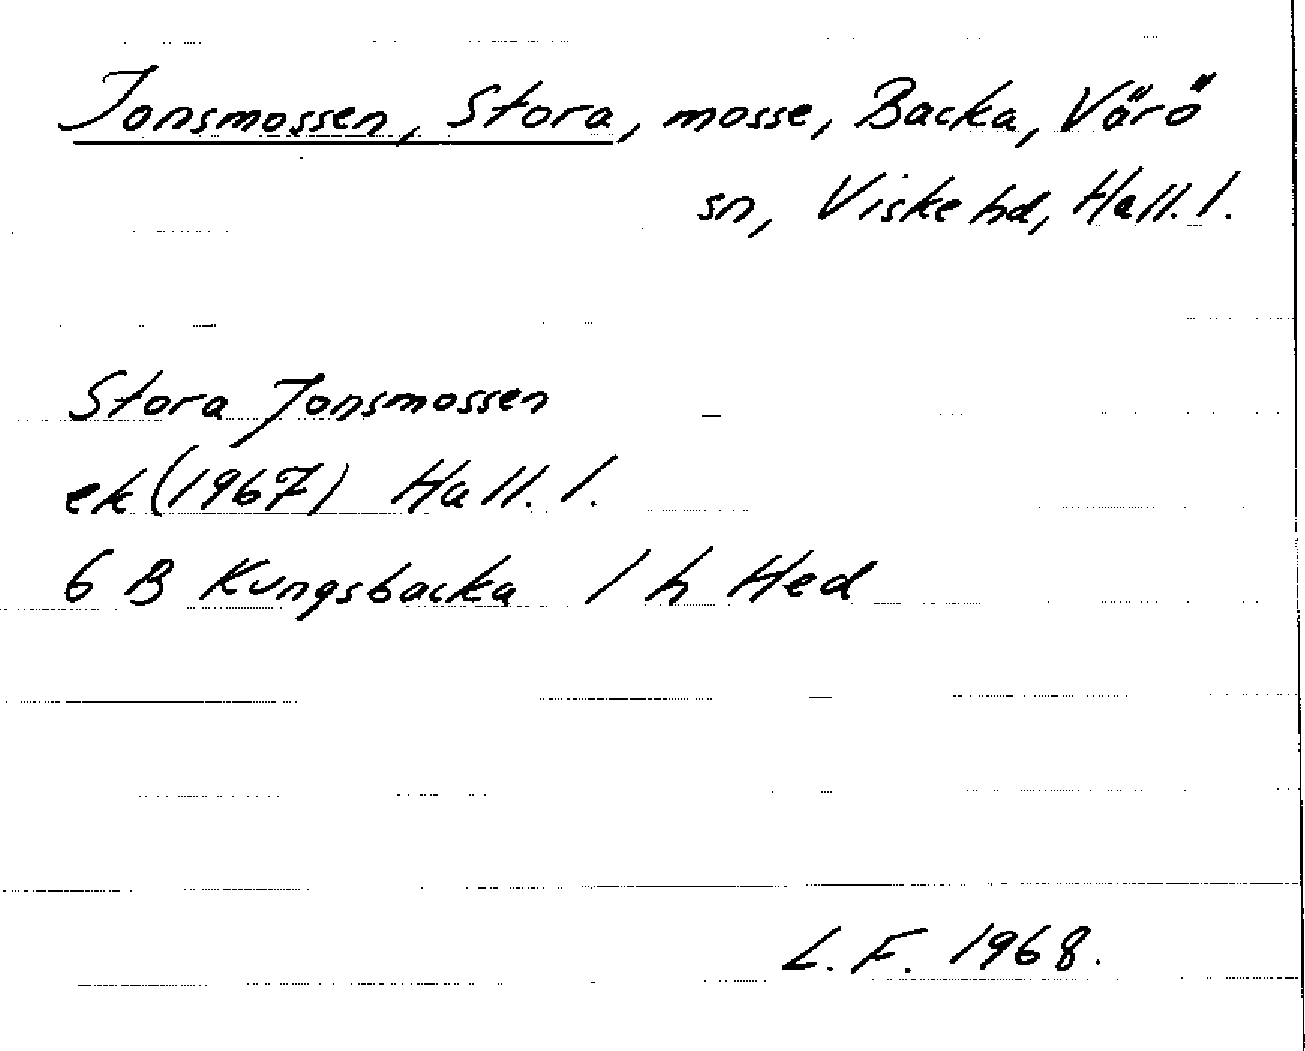 Jonsmossen, Stora, mosse, Backa, Värö
sn, Viske hd, Hall. l.
Stora Jonsmossen
ek (1967) Hall. l.
6 B Kungsbacka 1 h Hed
L. F. 1968.